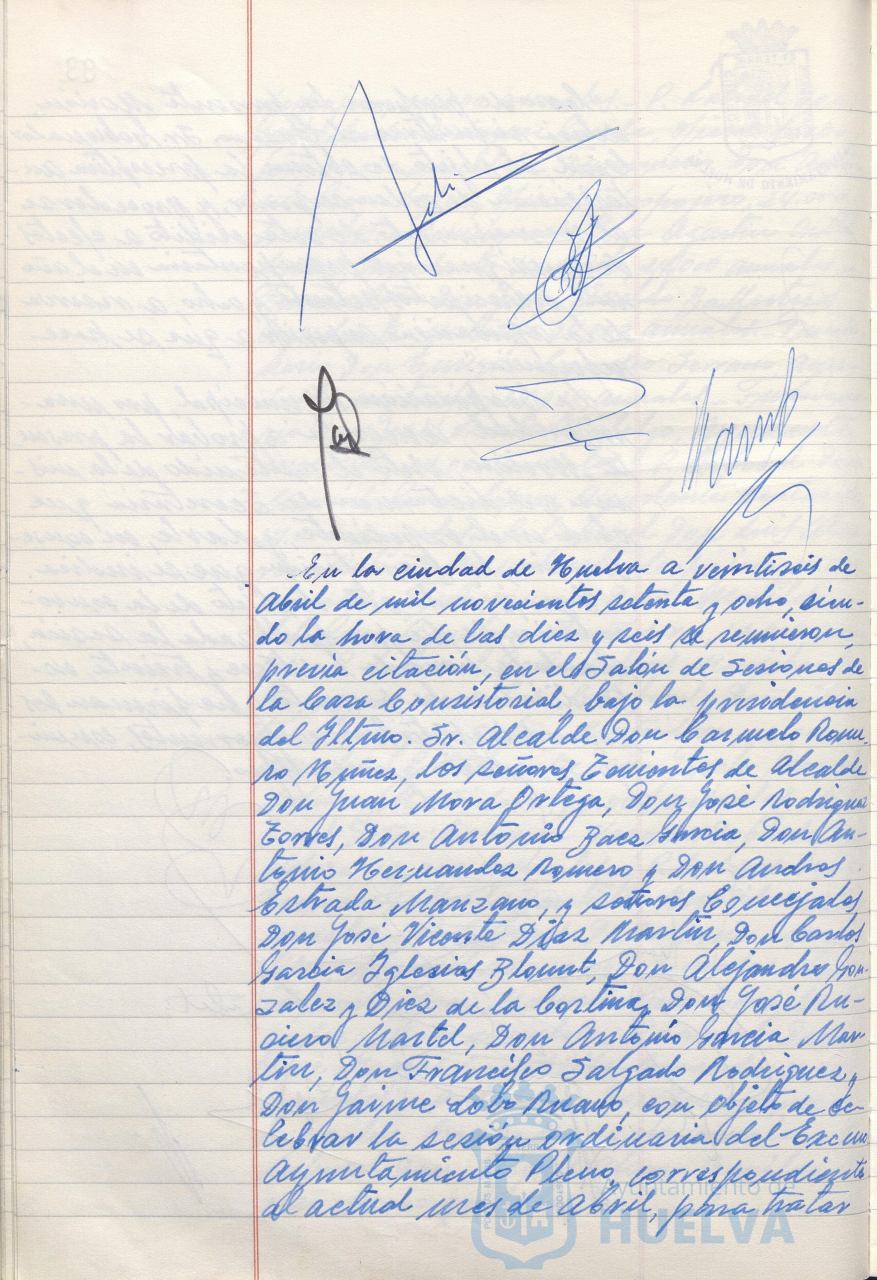 En la ciudad de Huelva a veintiseis de
Abril de mil novecientos setenta y ocho, sien-
do la hora de las diez y seis se reunieron,
previa citación, en el Salón de Sesiones de
la Casa Consistorial, bajo la presidencia
del Iltmo. Sr. Alcalde Don Carmelo Rome-
ro Nuñez, los señores Tenientes de Alcalde
Don Juan Mora Ortega, Don José Rodriguez
Torres, Don Antonio Baez Garcia, Don An-
tonio Hernandez Romero y Don Andres
Estrada Manzano, y señores Concejales
Don José Vicente Diaz Martin, Don Carlos
Garcia Iglesias Blount, Don Alejandro Gon-
zalez y Diez de la Cortina, Don José Ru-
ciero Martel, Don Antonio Garcia Mar-
tin, Don Francisco Salgado Rodriguez y
Don Jaime Lobo Ruano, con objeto de ce-
lebrar la sesión ordinaria del Excmo
Ayuntamiento Pleno, correspondiente
al actual mes de Abril, para tratar
Ayuntamiento de
HUELVA